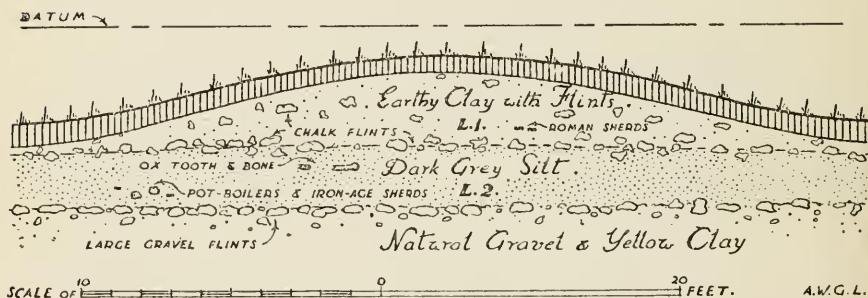 DATUM
Earthy Clay with Flints.
CHALK FLINTS L.1. ROMAN SHERDS
OX TOOTH & BONE Dark Grey Silt.
POT-BOILERS & IRON-AGE SHERDS L.2.
LARGE GRAVEL FLINTS Natural Gravel & Yellow Clay
SCALE OF 10 0 20 FEET. A.W.G.L.